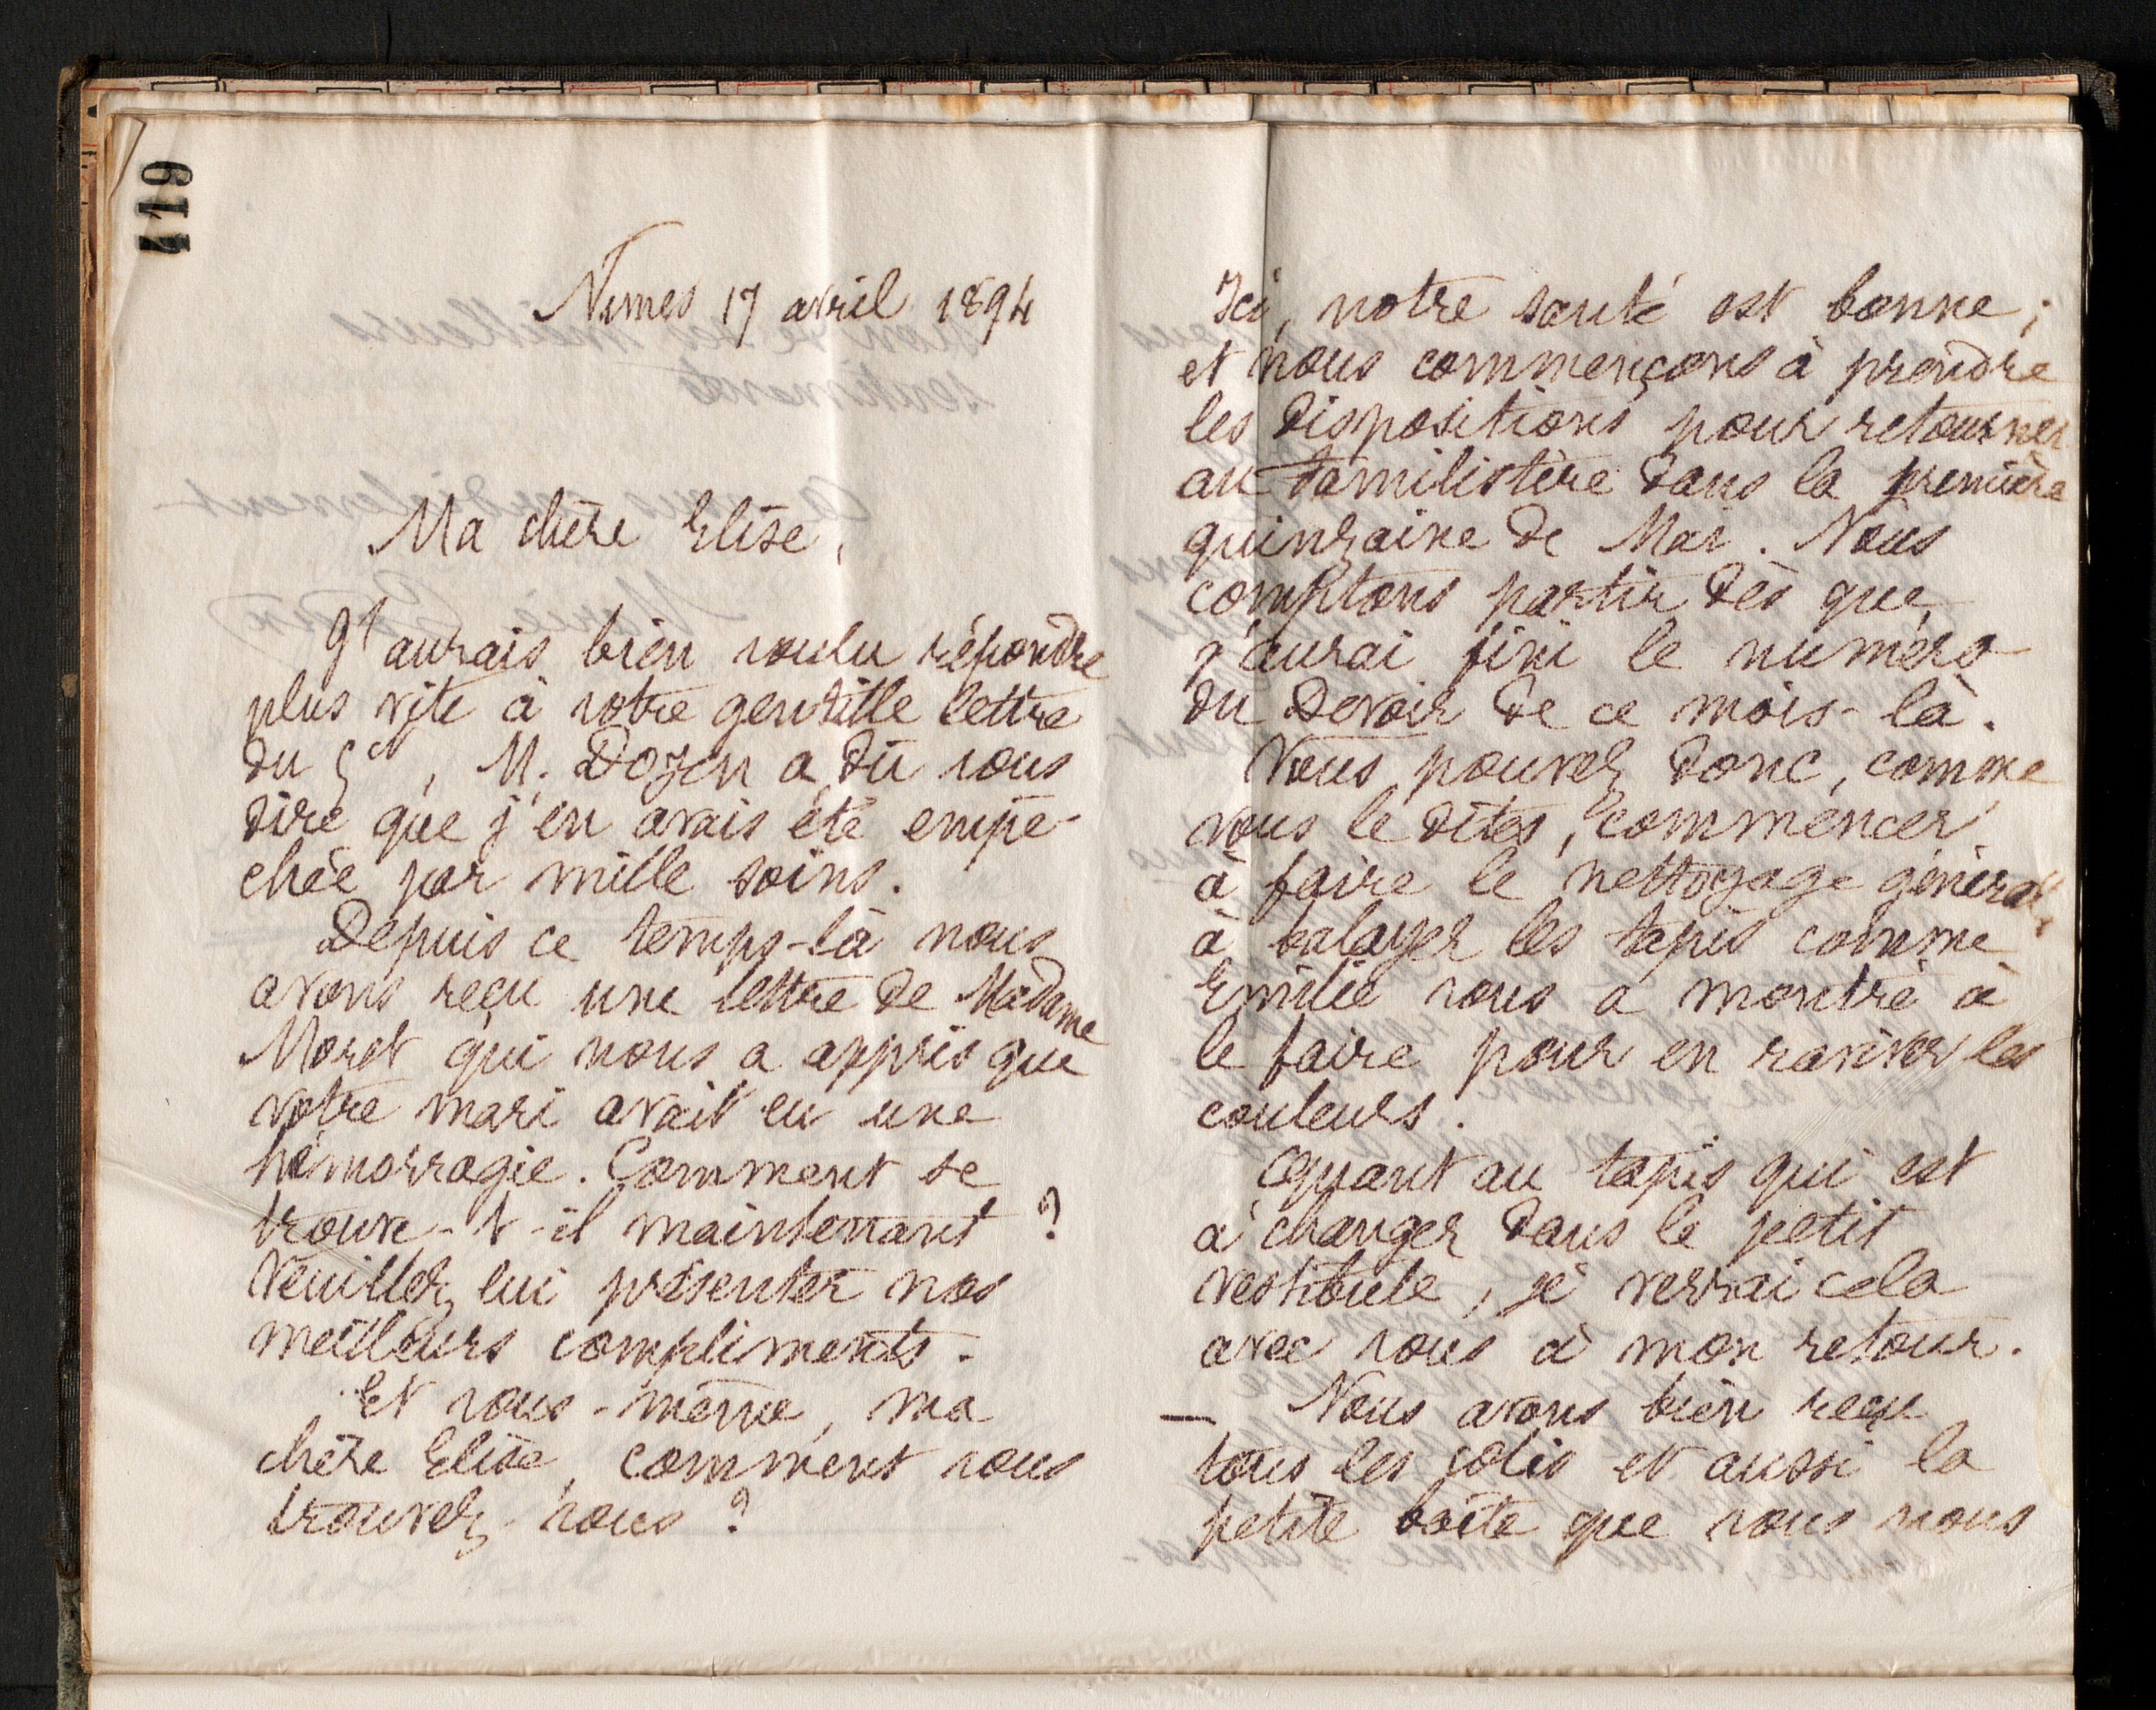 119
Nîmes 17 avril 1894
Ma chère Elise,
J'aurais bien voulu répondre
plus vite à votre gentille lettre
du 5 ct, M. Doyen a dû vous
dire que j'en avais été empê-
chée par mille soins.
Depuis ce temps-là nous
avons reçu une lettre de Madame
Moret qui nous a appris que
votre mari avait eu une
hémorragie. Comment se
trouve-t-il maintenant ?
Veuillez lui présenter nos
meilleurs compliments.
Et vous-même, ma
chère Elise, comment vous
trouvez-vous ?
Ici, notre santé est bonne ;
et nous commençons à prendre
les dispositions pour retourner
au familistère dans la première
quinzaine de Mai. Nous
comptons partir dès que
j'aurai fini le numéro
du Devoir de ce mois-là.
Vous pouvez donc, comme
vous le dites, commencer
à faire le nettoyage général,
à balayer les tapis comme
Emilie vous a montré à
le faire pour en raviver les
couleurs.
Quant au tapis qui est
à changer dans le petit
vestibule, je verrai cela
avec vous à mon retour.
— Nous avons bien reçu
tous les colis et aussi la
petite boîte que vous nous